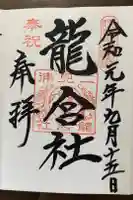 令和元年九月十五日
奉祝
龍宮社
奉拝